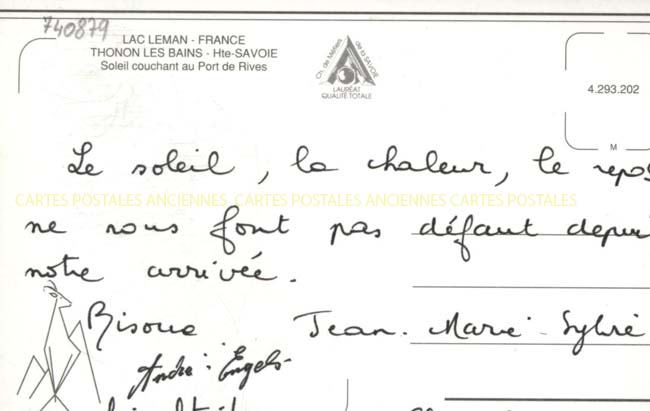 740879
LAC LEMAN - FRANCE
THONON LES BAINS - Hte-SAVOIE
Soleil couchant au Port de Rives
Ch. de Métiers de la SAVOIE
LAURÉAT
QUALITÉ TOTALE
4.293.202
M
Le soleil, la chaleur, le repos
CARTES POSTALES ANCIENNES CARTES POSTALES ANCIENNES CARTES POSTALES
ne nous font pas défaut depui
notre arrivée.
Bisous Jean-Marie-Sylvie
André Engels